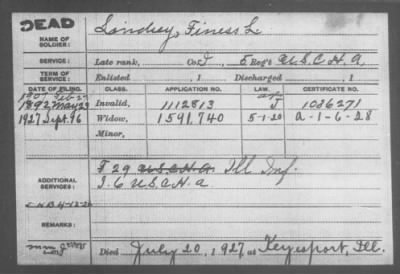 DEAD
NAME OF SOLDIER: Lindsey, Finess L.
SERVICE: Late rank, Co. I, 5 Reg't U.S.C.H.A.
TERM OF SERVICE: Enlisted , 1 Discharged , 1
DATE OF FILING. CLASS. APPLICATION NO. LAW. CERTIFICATE NO.
1907 Feb
1892 May 23 Invalid, 1112813 J 1086271
1927 Sept. 96 Widow, 1591,740 5-1-20 A-1-6-28
Minor,
ADDITIONAL SERVICES: F 29 U.S.C.H.A. Ill Inf.
I. 6 U.S.C.H.A
REMARKS:
Died July 20, 1927, at Keyesport, Ill.